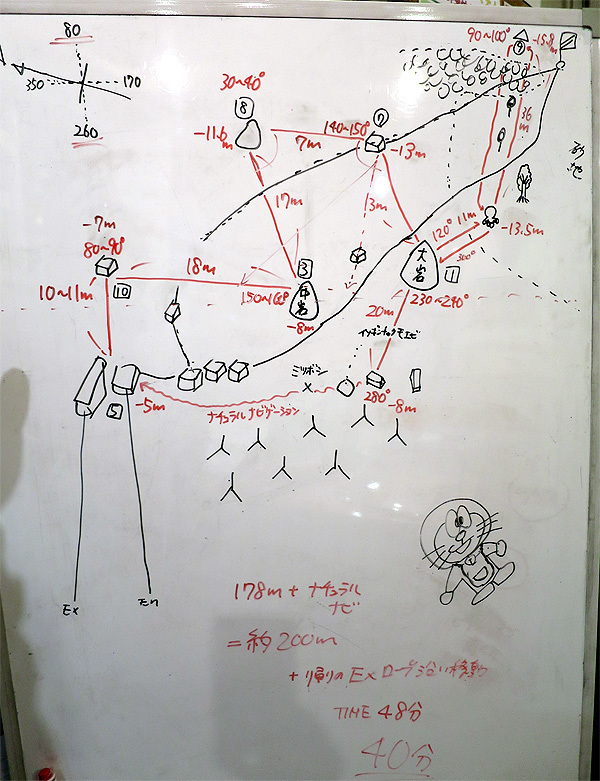 80
350
170
260
90~100°
9
-15.8m
36m
砂地
30~40°
8
-11.6m
7m
140~150°
7
-13m
17m
3m
120° 11m
300°
-13.5m
大岩
1
230~240°
-7m
80~90°
10
18m
10~11m
3
150~160°
中岩
-8m
20m
イソギンチャクモエビ
ミツボシ
280°
-8m
5
-5m
ナチュラルナビゲーション
Ex
En
178m + ナチュラル
ナビ
= 約200m
+ 帰りのExロープ沿い移動
TIME 48分
40分